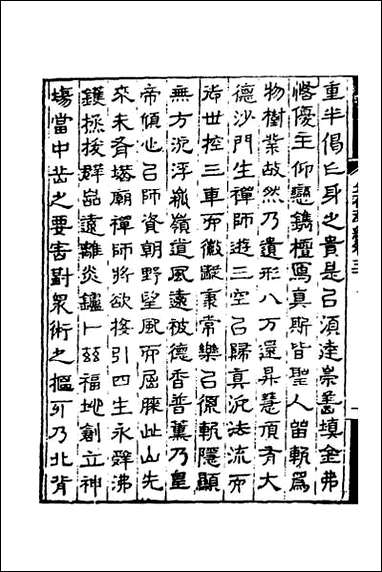 重半偈亡身之貴是㠯須達崇善填金弗
悋優主仰戀鐫檀寫真斯皆聖人留軌為
物樹業故然乃遺形八万還昇慧頂有大
德沙門生禪師遊三空㠯歸真汎法流而
御世控三車而徽秉常樂㠯軌隱顯
無方沉浮嶺道風遠被德香普薰乃皇
帝傾心㠯師資朝野望風而屈膝此山先
來未有塔廟禪師將欲接引四生永辭沸
鑊拯拔群品遠離炎鑪卜茲福地創立神
場當中岳之要害對衆術之樞乃北背